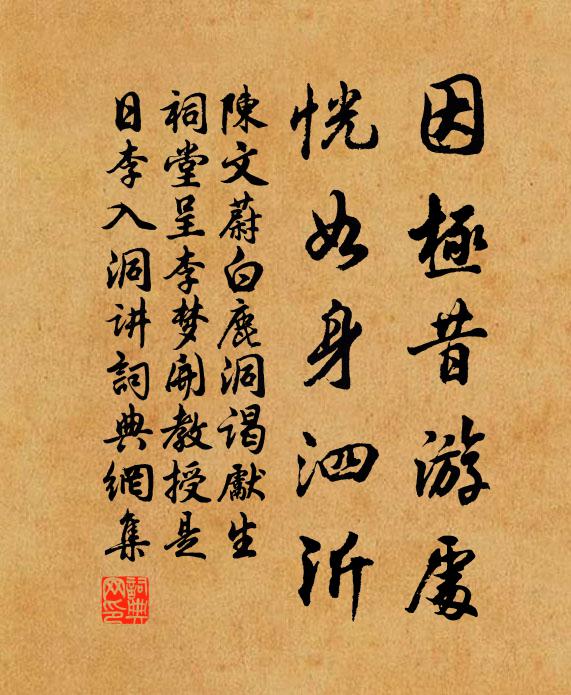 因極昔游處
恍如身泗沂
陳文蔚白鹿洞谒獻生
祠堂呈李梦開教授是
日李入洞讲詞典網集
詞典
网印